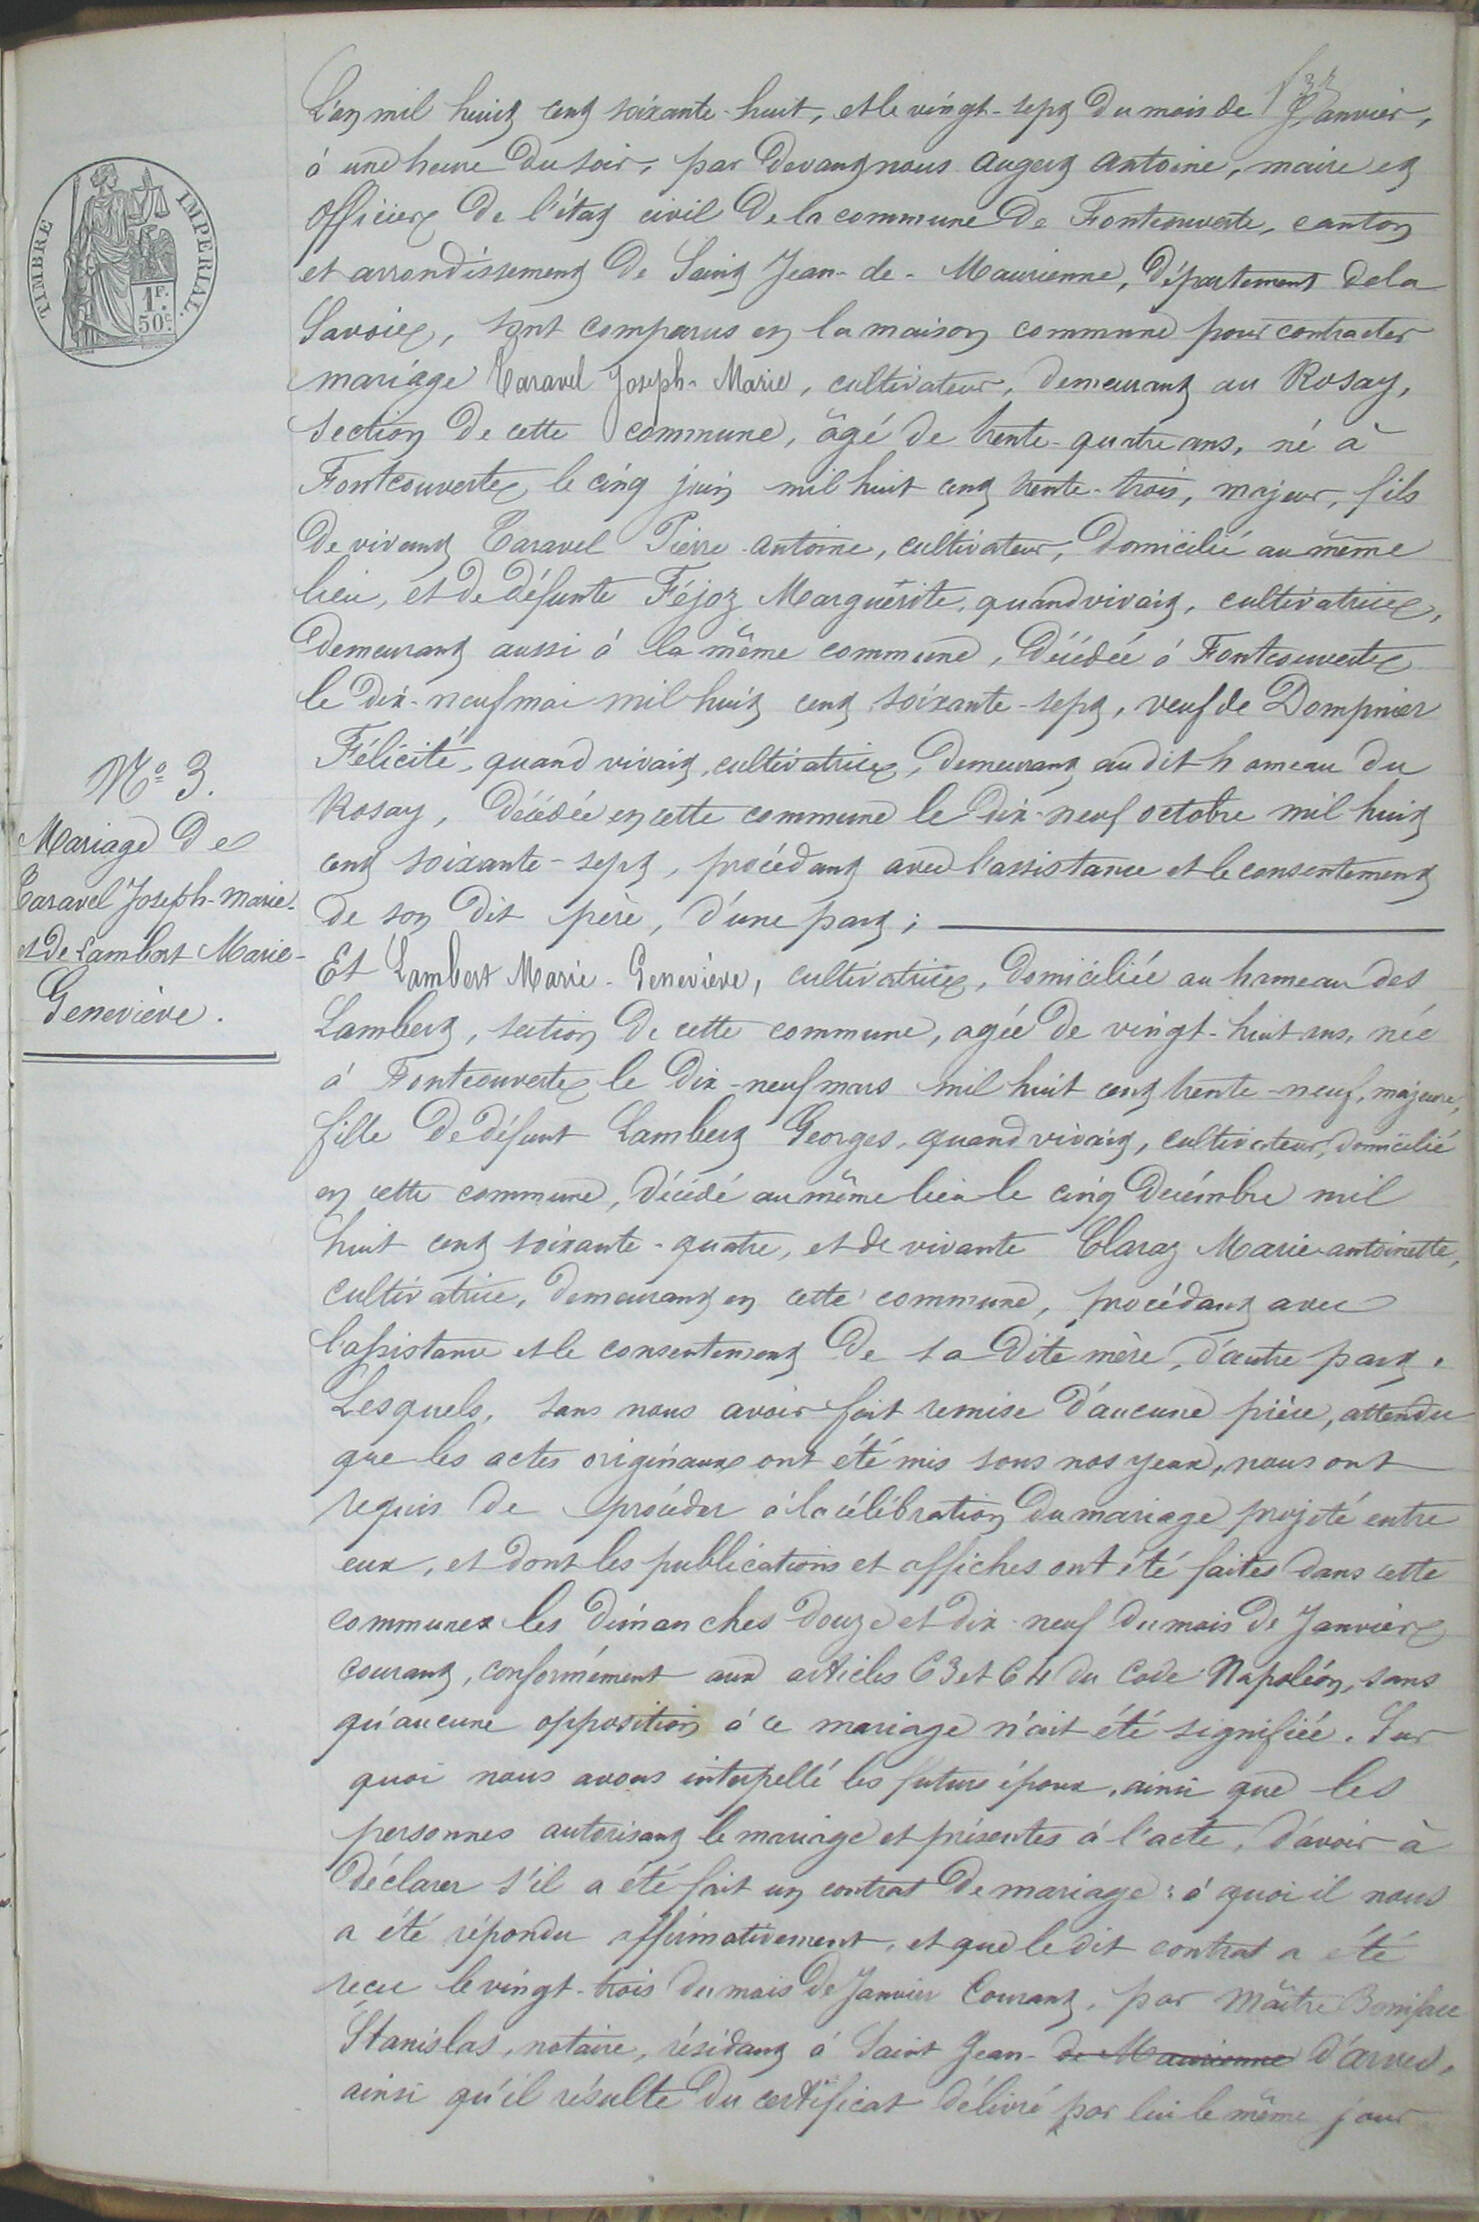 L'an mil huit cent soixante-huit, et le vingt-sept du mois de Janvier,
à une heure du soir, par devant nous Augert Antoine, maire et
Officier de l'état civil de la commune de Fontcouverte, canton
et arrondissement de Saint Jean-de-Maurienne, département de la
Savoie, sont comparus en la maison commune pour contracter
mariage Taravel Joseph-Marie, cultivateur, demeurant au Rosay,
section de cette commune, âgé de trente-quatre ans, né à
Fontcouverte le cinq juin mil huit cent trente-trois, majeur, fils
de vivant Taravel Pierre-Antoine, cultivateur, domicilié au même
lieu, et de défunte Féjoz Marguérite, quand vivait, cultivatrice,
demeurant aussi à la même commune, décédée à Fontcouverte
le dix-neuf mai mil huit cent soixante-sept, veuf de Dompnier
Félicité, quand vivait, cultivatrice, demeurant au dit hameau du
Rosay, décédée en cette commune le dix-neuf octobre mil huit
cent soixante-sept, procédant avec l'assistance et le consentement
de son dit père, d'une part;
Et Lambert Marie-Geneviève, cultivatrice, domiciliée au hameau des
Lambert, section de cette commune, agée de vingt-huit ans, née
à Fontcouverte le dix-neuf mars mil huit cent trente-neuf, majeure,
fille de défunt Lambert Georges, quand vivait, cultivateur, domicilié
en cette commune, décédé au même lieu le cinq décembre mil
huit cent soixante-quatre, et de vivante Claraz Marie-antoinette,
cultivatrice, demeurant en cette commune, procédant avec
l'assistance et le consentement de sa dite mère, d'autre part.
Lesquels, sans nous avoir fait remise d'aucune pièce, attendu
que les actes originaux ont été mis sous nos yeux, nous ont
requis de procéder à la célébration du mariage projeté entre
eux, et dont les publications et affiches ont été faites dans cette
commune les dimanches douze et dix-neuf du mois de Janvier
courant, conformément aux articles 63 et 64 du Code Napoléon, sans
qu'aucune opposition à ce mariage n'ait été signifiée. Sur
quoi nous avons interpellé les futurs époux, ainsi que les
personnes autorisant le mariage et présentes à l'acte, d'avoir à
déclarer s'il a été fait un contrat de mariage: à quoi il nous
a été répondu affirmativement, et que le dit contrat a été
reçu le vingt-trois du mois de Janvier Courant, par Maître Boniface
Stanislas, notaire, résidant à Saint Jean-de Maurienne d'arves,
ainsi qu'il résulte du certificat délivré par lui le même jour
TIMBRE IMPERIAL.
1F.
50c.
N° 3.
Mariage de
Taravel Joseph-Marie-
et de Lambert Marie-
Geneviève.